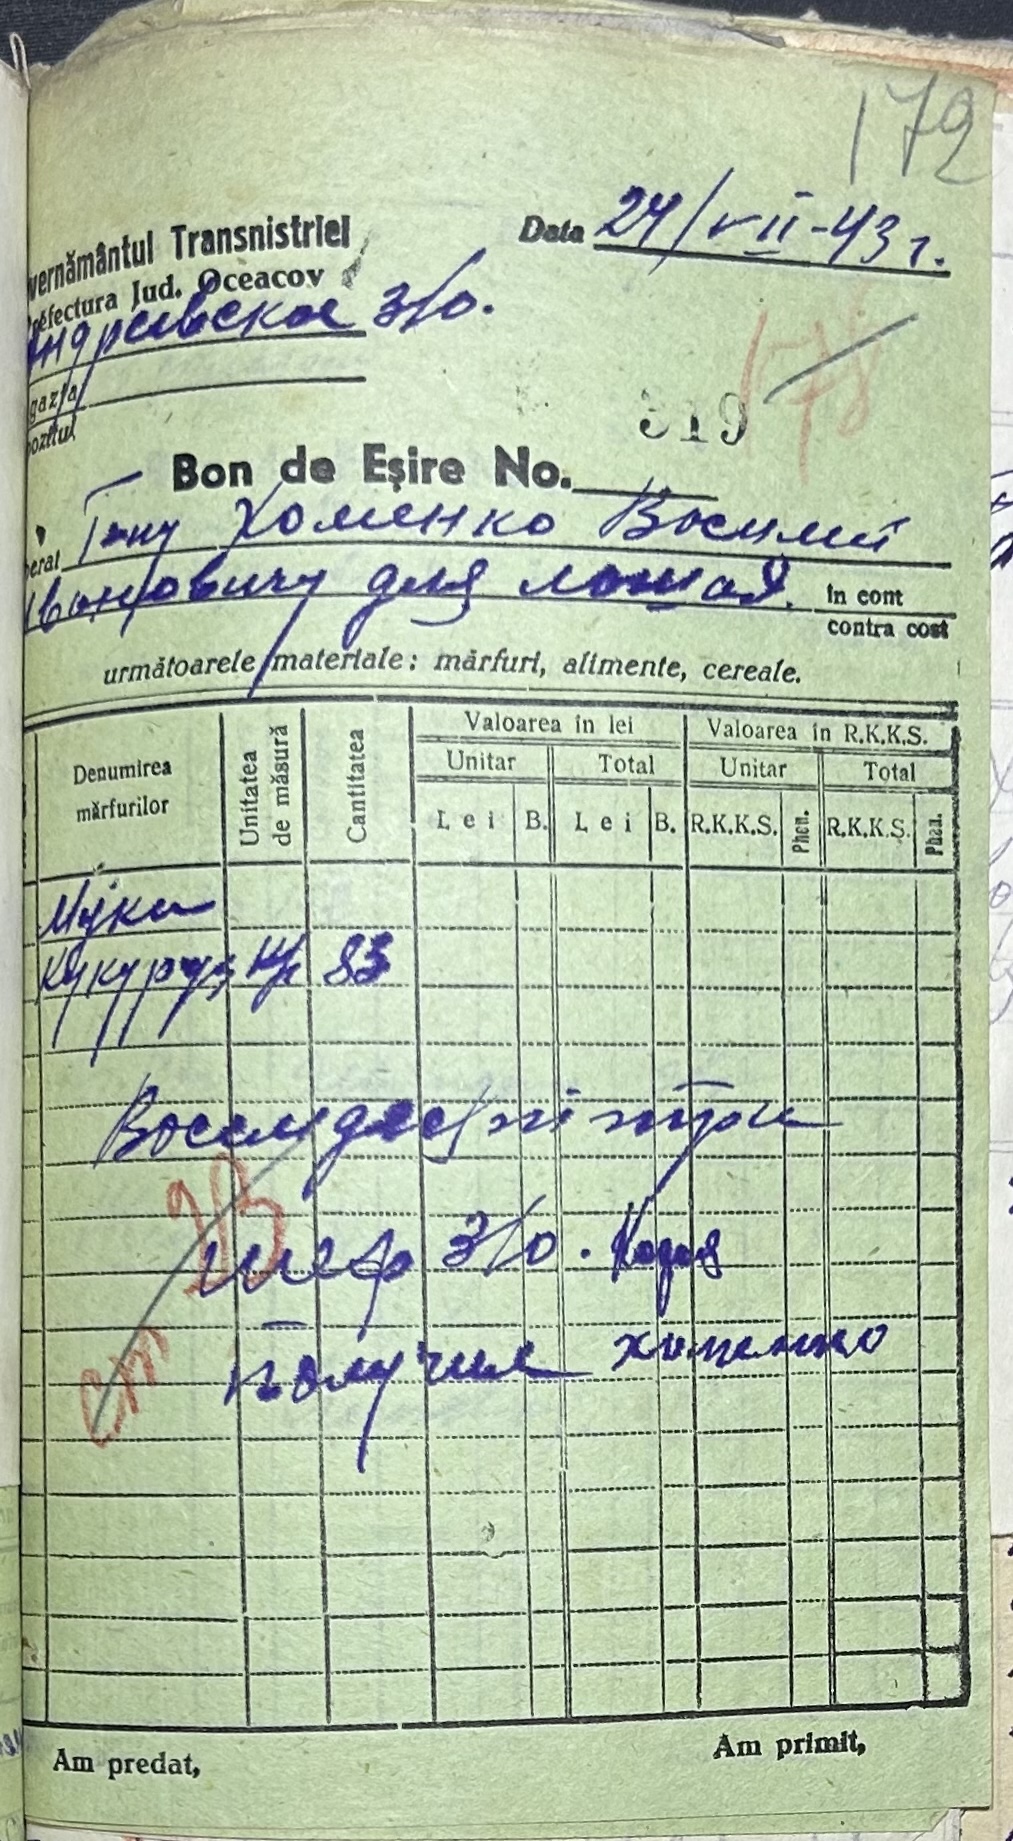 172
vernământul Transnistriei
Prefectura Jud. Oceacov
Data 24/VII-43 г.
Андреевское З/О.
gazia
pozitul
178
319
Bon de Eşire No.
erat Гр-ну Хоменко Василий
Ивановичу для лошад. in cont
contra cost
următoarele materiale: mărfuri, alimente, cereale.
Denumirea mărfurilor
Unitatea de măsură
Cantitatea
Valoarea în lei
Valoarea în R.K.K.S.
Unitar Total Unitar Total
Lei B. Lei B. R.K.K.S. Phen. R.K.K.S. Phen.
Мука
Кукуруз кг 83
Восемдесят три
Шеф З/О.
получил Хоменко
Am predat,
Am primit,